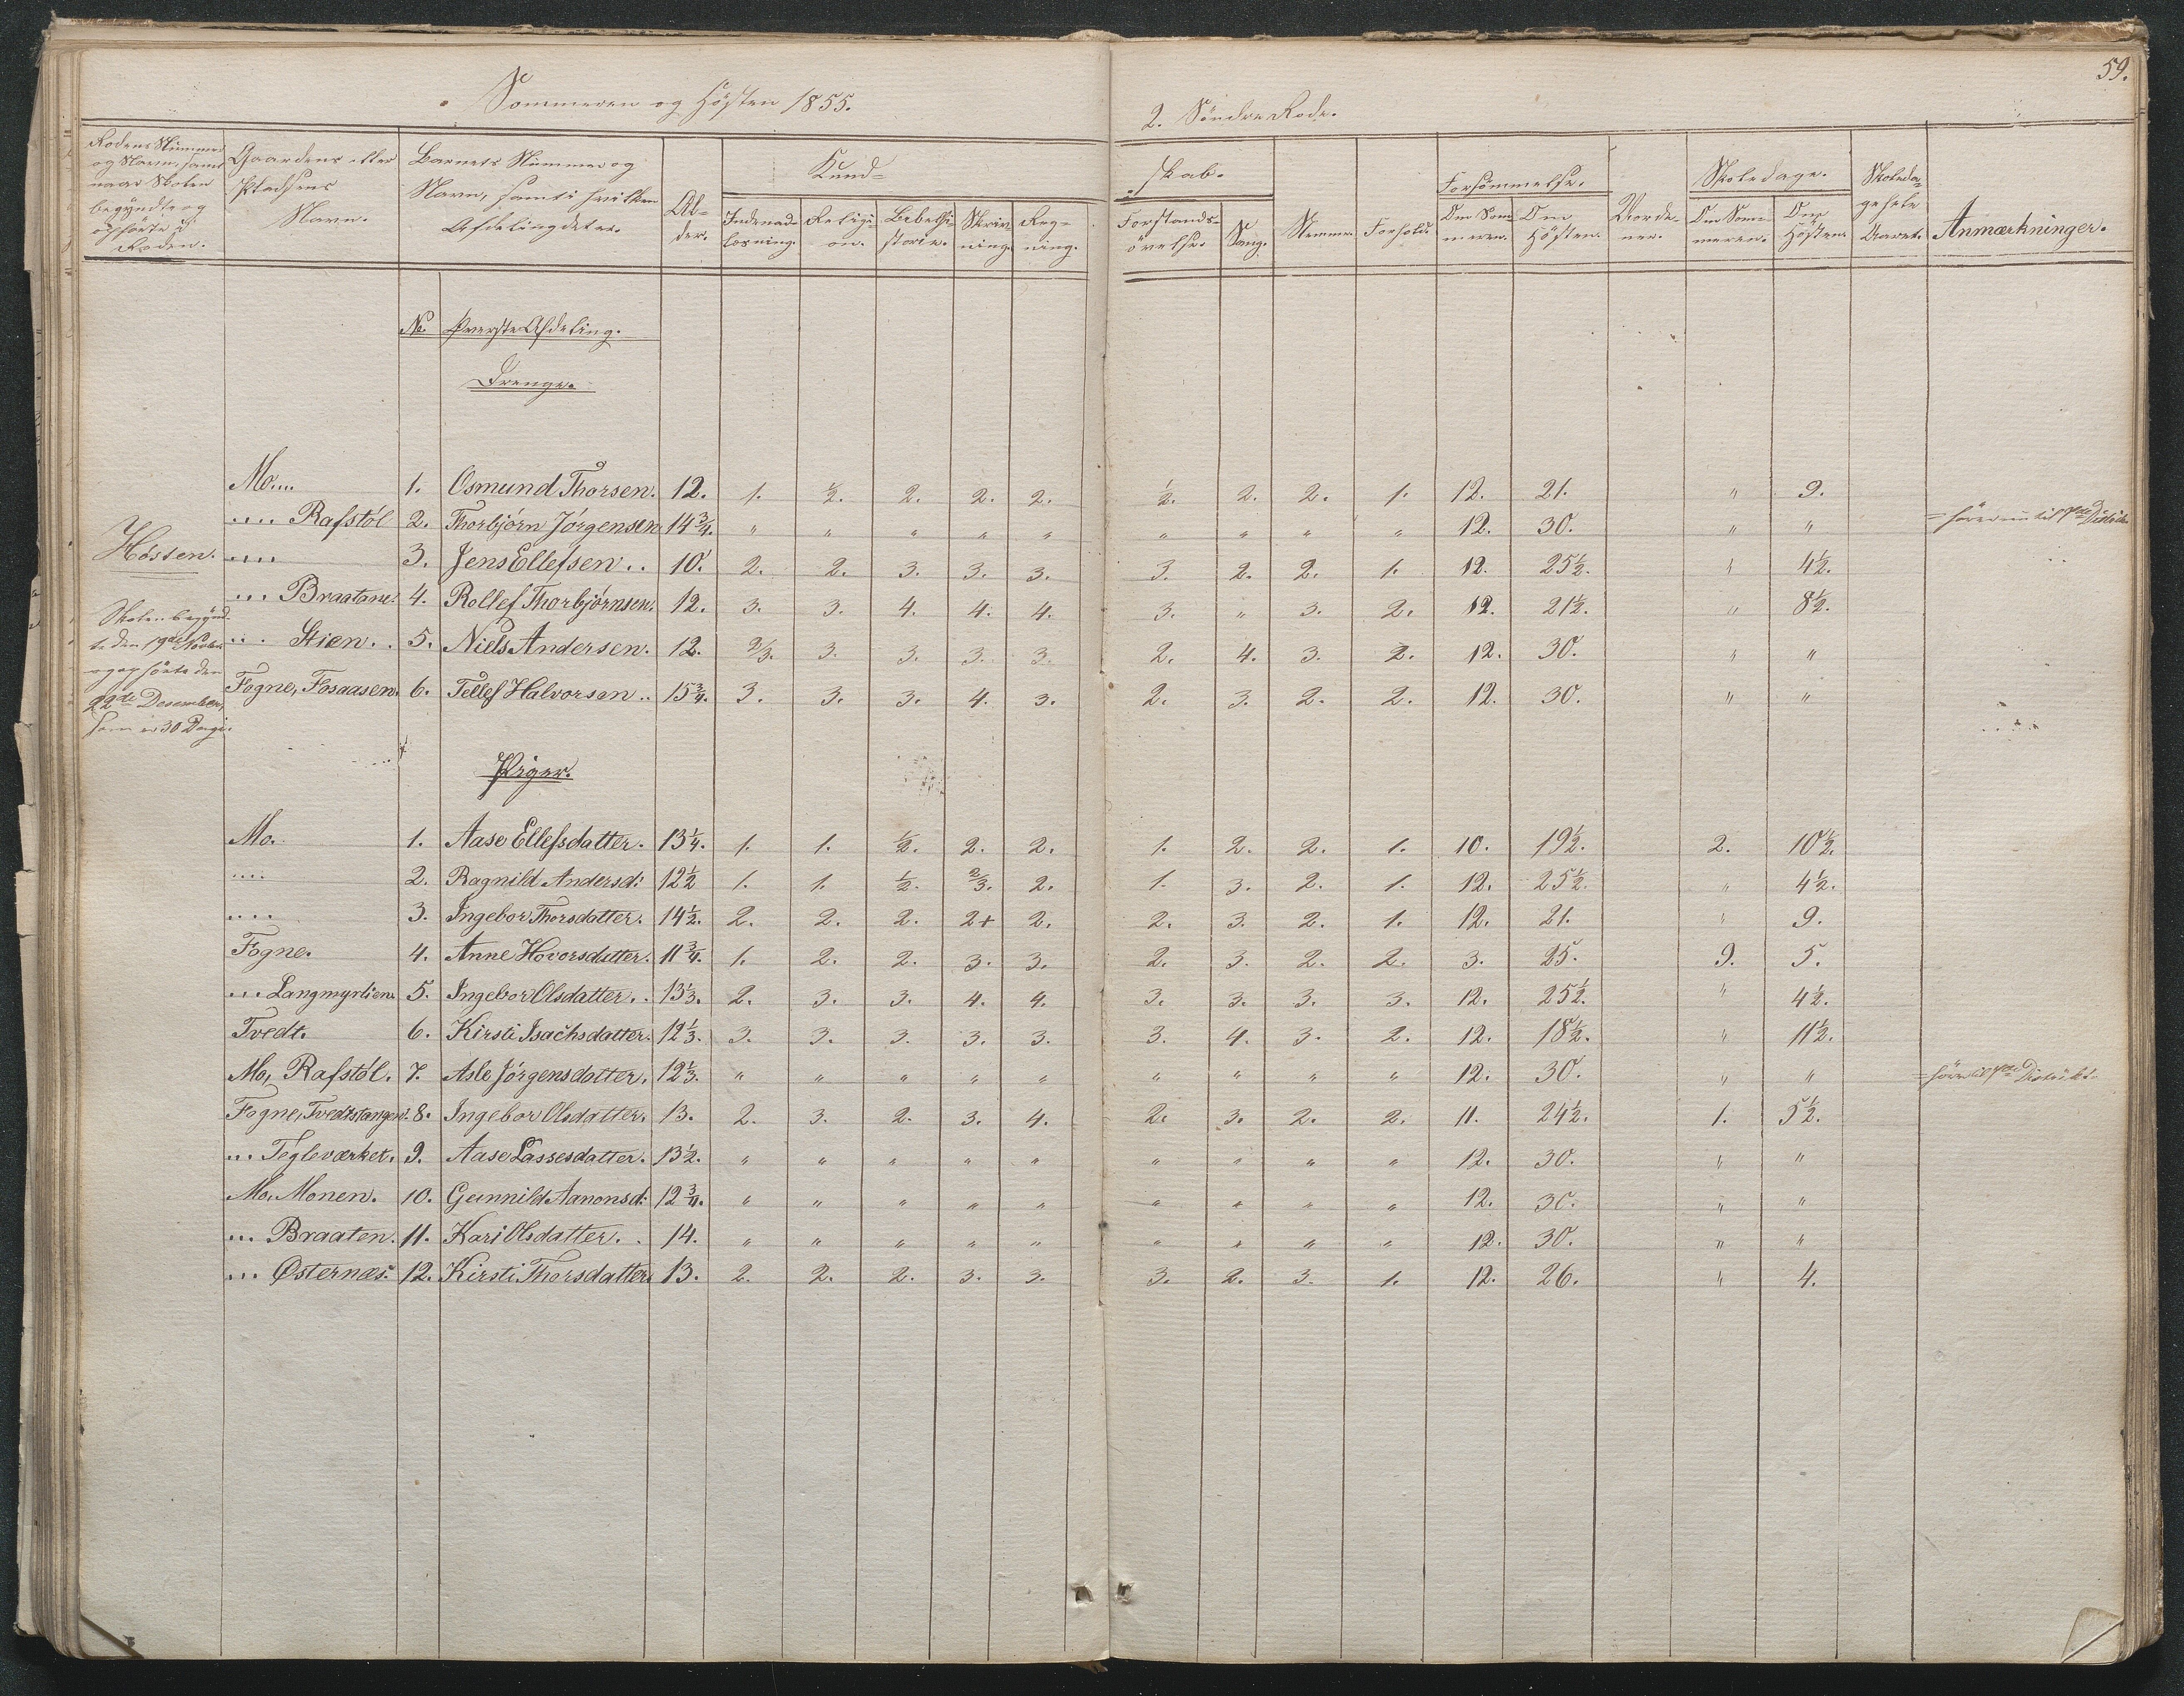 59.
Sommeren og Hösten 1855.
2. Söndre Rode.
Rodens Nummer og Navn, samt naar Skolen begyndte og ophörte i Roden.
Gaardens eller Pladsens Navn.
Barnets Nummer og Navn, samt i hvilken Afdeling det er.
Alder.
Kundskab.
Indenadlæsning. Religion. Bibelhistorie. Skrivning. Regning. Forstandsövelse. Sang.
Nemme. Forhold.
Forsömmelse.
Om Sommeren. Om Hösten.
Vordener.
Skoledage.
Om Sommeren. Om Hösten.
Skoledage hele Aaret.
Anmærkninger.
No. Øverste Afdeling.
Drenge.
Mo.... 1. Osmund Thorsen. 12. 1. ½. 2. 2. 2. ½. 2. 2. 1. 12. 21. " 9.
.... Rafstøl 2. Thorbjørn Jørgensen 14¾. " " " " " " " " " 12. 30. " "
.... 3. Jens Ellefsen.. 10. 2. 2. 3. 3. 3. 3. 2. 2. 1. 12. 25½. " 4½.
... Braatane. 4. Rollef Thorbjørnsen. 12. 3. 3. 4. 4. 4. 3. " 3. 2. 12. 21½. " 8½.
... Stien.. 5. Niels Andersen. 12. 2/3. 3. 3. 3. 3. 2. 4. 3. 2. 12. 30. " "
Fogne, Fosaasen. 6. Tellef Halvorsen.. 15¾. 3. 3. 3. 4. 3. 2. 3. 2. 2. 12. 30. " "
Høsten.
Skolen begynd-
te den 19de Novbr.
og ophörte den
22de Desember,
som er 30 Dage.
Piger.
Mo. 1. Aase Ellefsdatter. 13¼. 1. 1. ½. 2. 2. 1. 2. 2. 1. 10. 19½. 2. 10½.
.... 2. Ragnild Andersd: 12½ 1. 1. ½. 2/3. 2. 1. 3. 2. 1. 12. 25½. " 4½.
.... 3. Ingebor Thorsdatter. 14½. 2. 2. 2. 2+ 2. 2. 3. 2. 1. 12. 21. " 9.
Fogne. 4. Anne Hovorsdatter. 11¾. 1. 2. 2. 3. 3. 2. 3. 2. 2. 3. 25. 9. 5.
... Langmyrlien. 5. Ingebor Olsdatter.. 13⅓. 2. 3. 3. 4. 4. 3. 3. 3. 3. 12. 25½. " 4½.
Tvedt. 6. Kirsti Isachsdatter. 12⅓. 3. 3. 3. 3. 3. 3. 4. 3. 2. 12. 18½. " 11½.
Mo, Rafstøl. 7. Asle Jørgensdatter. 12⅓. " " " " " " " " " 12. 30. " "
Fogne, Tvedtstangen. 8. Ingebor Olsdatter. 13. 2. 3. 2. 3. 4. 2. 3. 2. 2. 11. 24½. 1. 5½.
... Tegleværket. 9. Aase Lassesdatter. 13½. " " " " " " " " " 12. 30. " "
Mo, Monen. 10. Gunnild Aanonsd: 12¾. " " " " " " " " " 12. 30. " "
... Braaten. 11. Kari Olsdatter.. 14. " " " " " " " " " 12. 30. " "
... Østernæs. 12. Kirsti Thorsdatter. 13. 2. 2. 2. 3. 3. 3. 2. 3. 1. 12. 26. " 4.